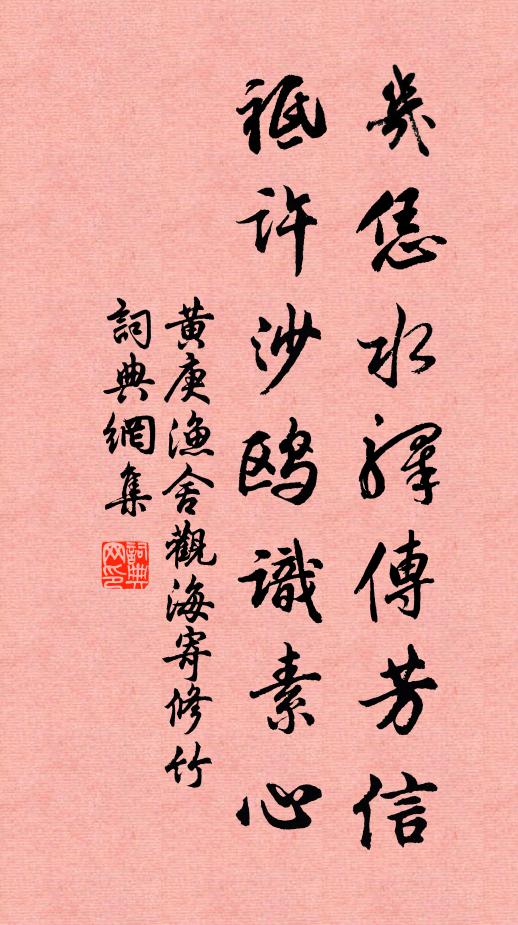 幾憑水驛傳芳信
祗許沙鷗識素心
黃庚漁舍觀海寄修竹
詞典網集
詞典網印